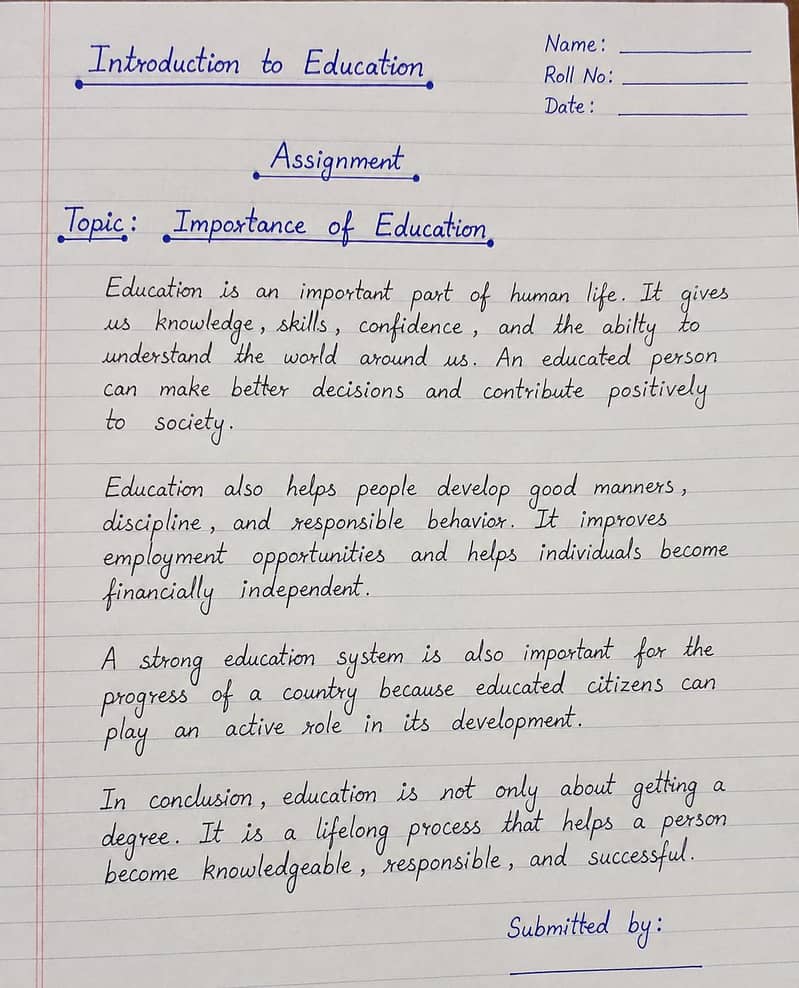 Introduction to Education
Name:
Roll No:
Date:
Assignment
Topic: Importance of Education
Education is an important part of human life. It gives
us knowledge, skills, confidence, and the abilty to
understand the world around us. An educated person
can make better decisions and contribute positively
to society.
Education also helps people develop good manners,
discipline, and responsible behavior. It improves
employment opportunities and helps individuals become
financially independent.
A strong education system is also important for the
progress of a country because educated citizens can
play an active role in its development.
In conclusion, education is not only about getting a
degree. It is a lifelong process that helps a person
become knowledgeable, responsible, and successful.
Submitted by: